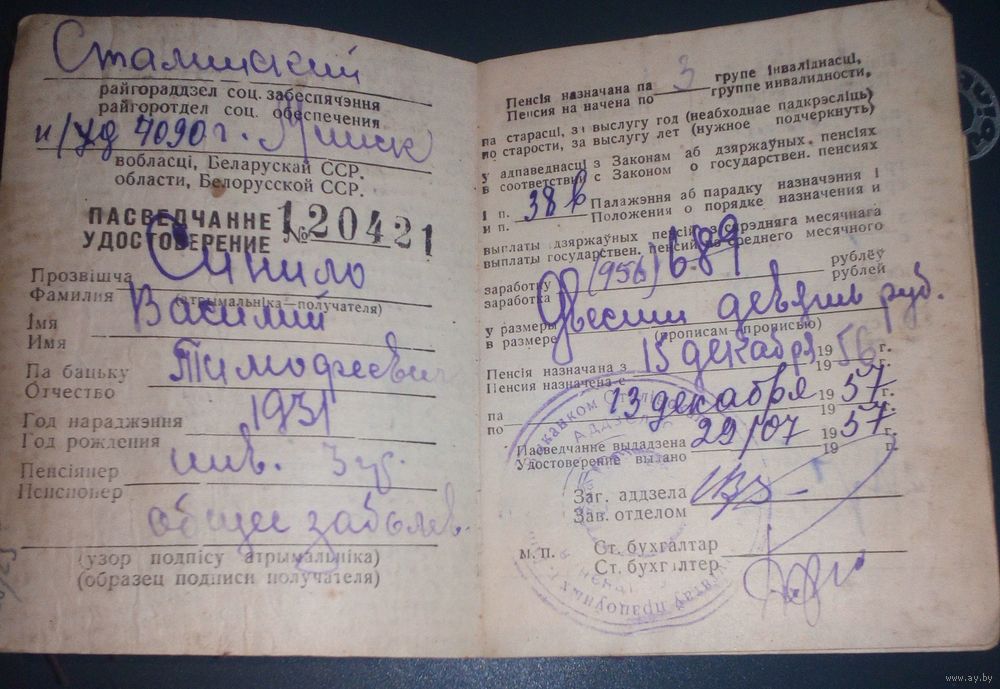 Сталинский
райгораддзел соц. забеспячэння
райгоротдел соц. обеспечения
и/уд 7090 г. Минск
вобласці, Беларускай ССР.
области, Белорусской ССР.
ПАСВЕДЧАННЕ
УДОСТОВЕРЕНИЕ № 120421
Прозвішча Синило
Фамилия (атрымальніка—получателя)
Імя Василий
Имя
Па бацьку Тимофеевич
Отчество
Год нараджэння 1931
Год рождения
Пенсіянер инв. 3 гр.
Пенсионер
общее заболев.
(узор подпісу атрымальніка)
(образец подписи получателя)
Пенсія назначана па 3 групе інваліднасці,
Пенсия назначена по группе инвалидности,
па старасці, за выслугу год (неабходнае падкрэсліць)
по старости, за выслугу лет (нужное подчеркнуть)
у адпаведнасці з Законам аб дзяржаўных пенсіях
в соответствии с Законом о государствен. пенсиях
і п. 38 в Палажэння аб парадку назначэння і
и п. Положения о порядке назначения и
выплаты дзяржаўных пенсій з сярэдняга месячнага
выплаты государствен. пенсий из среднего месячного
заработку (956) 689 рублёў
заработка рублей
у размеры Двести девять руб.
в размере (прописам—прописью)
Пенсія назначана з 15 декабря 1956 г.
Пенсия назначена с 19
па 13 декабря 1957 г.
по 19
Пасведчанне выдадзена 29/07 1957 г.
Удостоверение выдано 19 г.
Заг. аддзела
Зав. отделом
м. п. Ст. бухгалтар
Ст. бухгалтер
www.ay.by